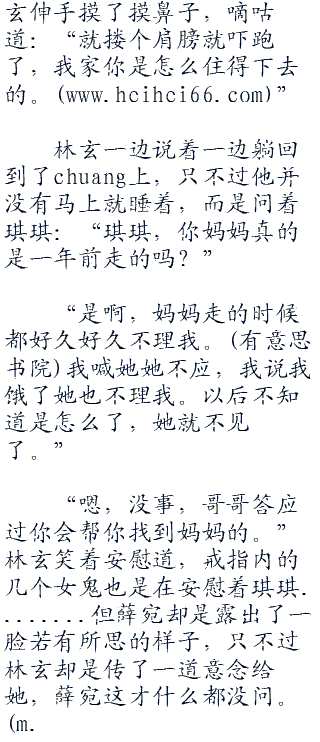 玄伸手摸了摸鼻子，嘀咕
道：“就搂个肩膀就吓跑
了，我家你是怎么住得下去
的。(www.hcihci66.com)”
林玄一边说着一边躺回
到了chuang上，只不过他并
没有马上就睡着，而是问着
琪琪：“琪琪，你妈妈真的
是一年前走的吗？”
“是啊，妈妈走的时候
都好久好久不理我。(有意思
书院)我喊她她不应，我说我
饿了她也不理我。以后不知
道是怎么了，她就不见
了。”
“嗯，没事，哥哥答应
过你会帮你找到妈妈的。”
林玄笑着安慰道，戒指内的
几个女鬼也是在安慰着琪琪.
.......但薛宛却是露出了一
脸若有所思的样子，只不过
林玄却是传了一道意念给
她，薛宛这才什么都没问。
(m.